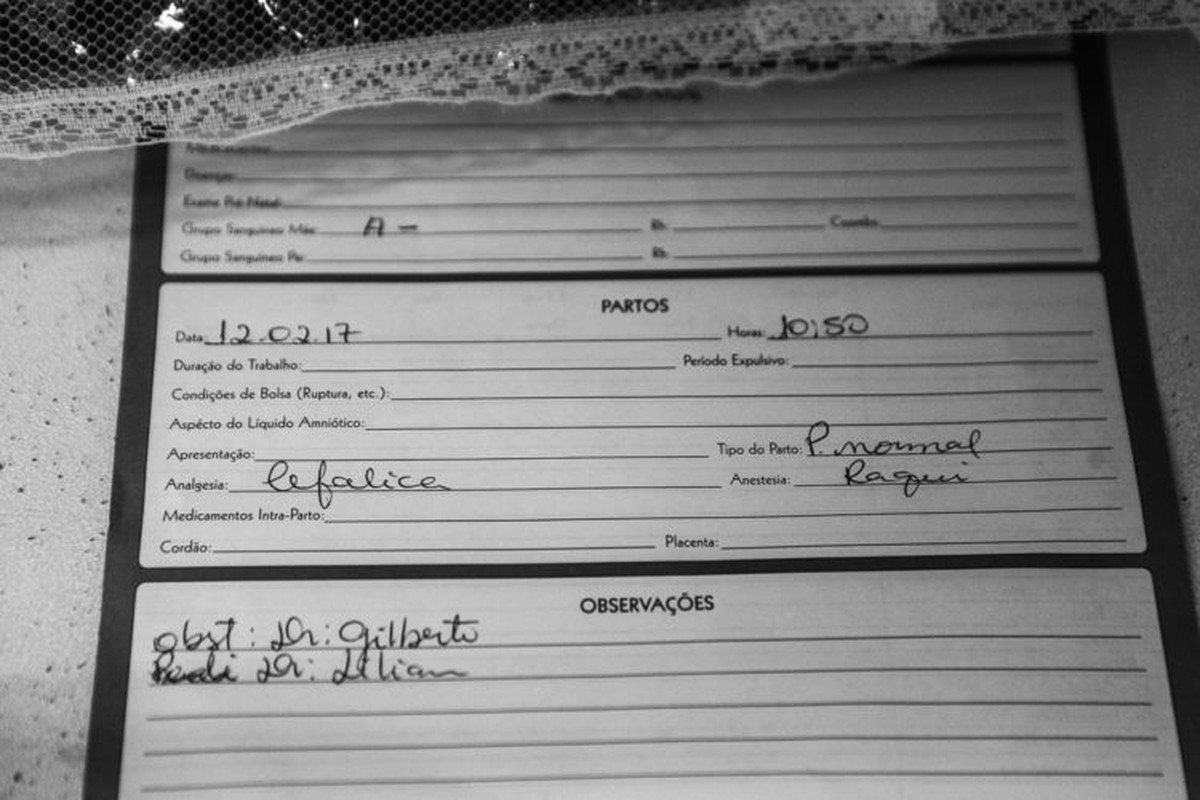 Doenças:
Exame Pré-Natal:
Grupo Sanguíneo Mãe: A - Rh:
Grupo Sanguíneo Pai: Rh:
PARTOS
Data: 12.02.17 Horas: 10:50
Duração do Trabalho: Período Expulsivo:
Condições de Bolsa (Ruptura, etc.):
Aspécto do Líquido Amniótico:
Apresentação: Tipo do Parto: P. normal
Analgesia: Cefalica Anestesia: Raqui
Medicamentos Intra-Parto:
Cordão: Placenta:
OBSERVAÇÕES
obst: Dr: Gilberto
Pedi Dr: Lilian